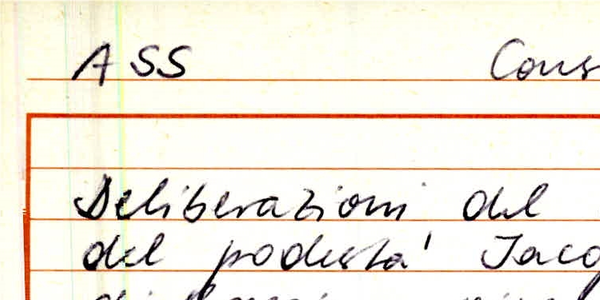 ASS Cons
Deliberazioni del
del podestà Jaco